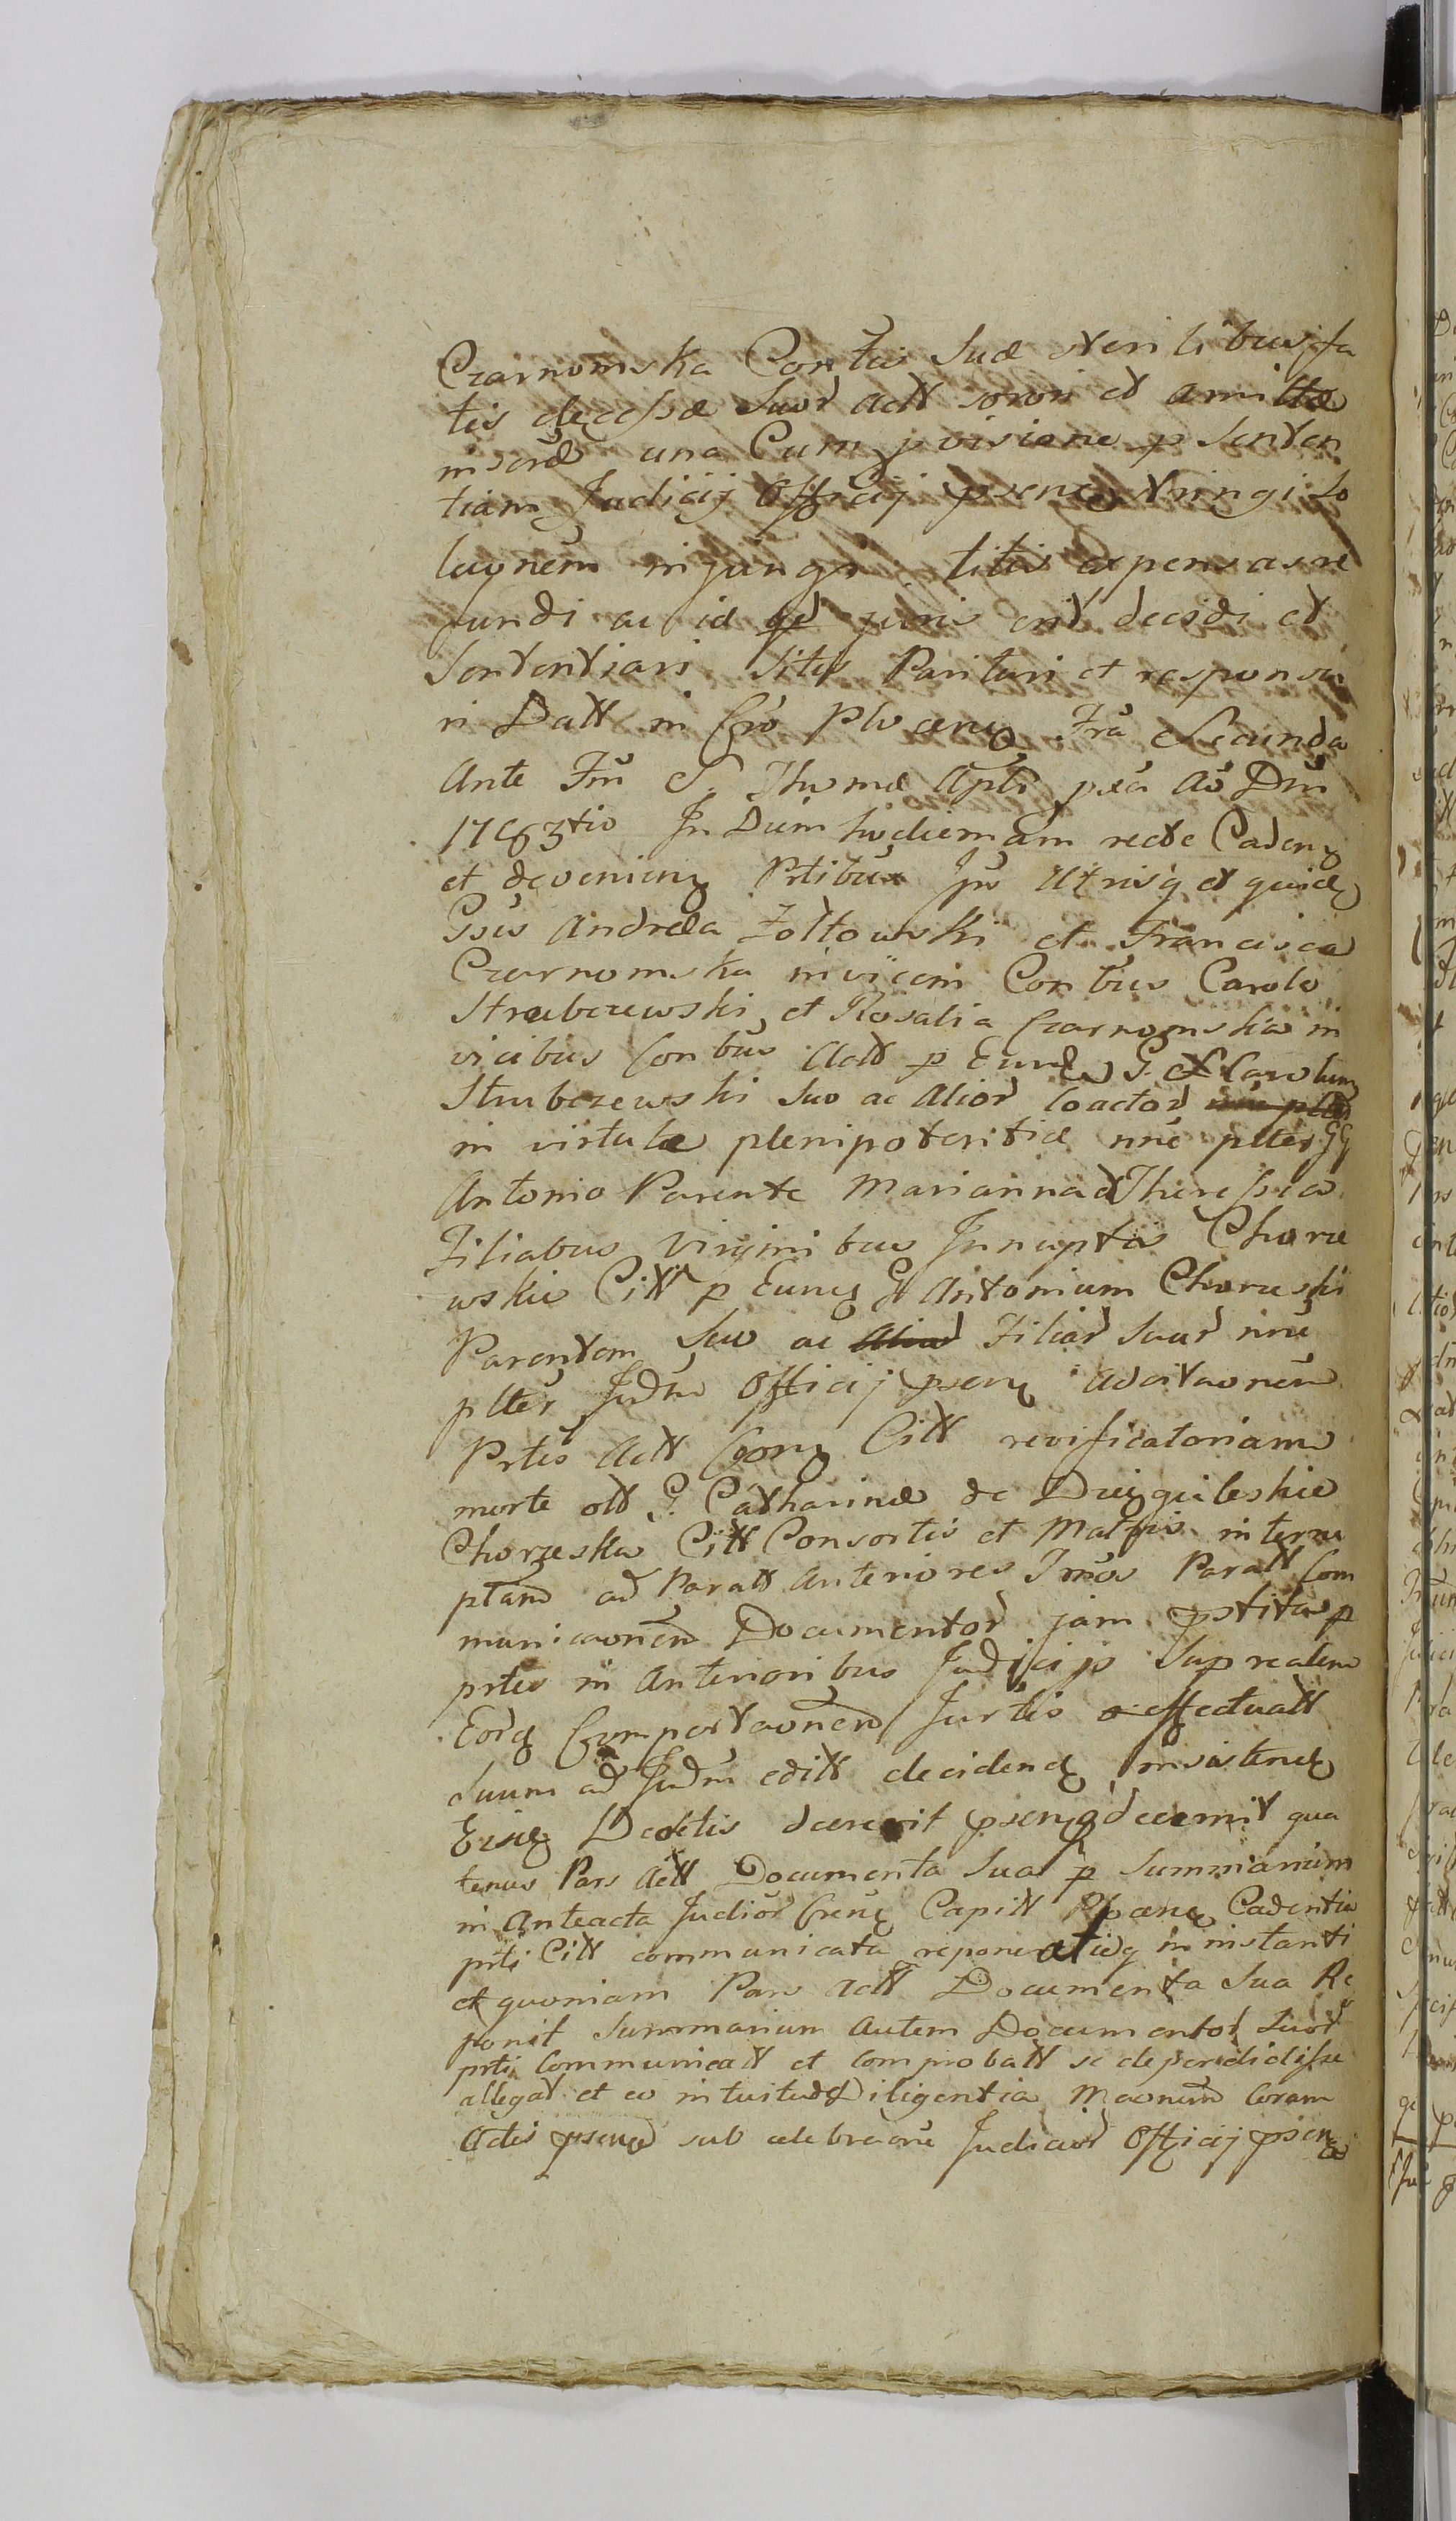 Czarnomska Contais Suæ sterilibus fa
tis decessæ Suor Actt sorori et amittæ
una Cum pvisione p Senten
tiam Judicij Officij psenq stringi so
luonem injungi litis expensas re
fundi ac id qd juris erit decidi et
Sententiari Sitis Parituri et responsu
ri Datt in Cro Plocenq Fra Secunda
Ante Fm S. Thomæ Apli pxa Ao Dni
1763tio In Diem hodiernam recte Cadenq
et devenienq Prtibus Ipis Utrisq et quidq
Gsis Andrea Zołtowski et Francisca
Czarnomska invicem Conbus Carolo
Strubczewski et Rosalia Czarnomska in
vicibus Conbus Actt p Eund G. Carolum
Strubczewski Suo ac Alior Coactor
in virtute plenipotentiæ nne plter GG
Antonio Parente Marianna et Theressia
Filiabus Virginibus Innuptis Chorze
wskie Citt p Eunq G Antonium Chorzeski
Parentem Suo ac Aliar Filiar Suar nne
plter Judm Officij psenq adcitaonem
Prtis Actt Citt revificatoriam
morte olt G. Catharinæ de
Chorzeska Citt Consortis et Matris interru
ptam ad Paratt Anteriores Tmos Paratt Com
municaonem Documentor jam pstita p
prtes in Anterioribus Judicijs Sup realem
Eorq Comportaonem Jurtis effectuatt
Suum ad Judm editt decidend insistend
Eisq Decretis decrevit psenq decernit qua
tenus Pars Actt Documenta Sua p Summarium
in Anteacta Judior Crenq Capitt Plocenq Cadentia
prti Citt communicata reponeret in instanti
et quoniam Pars Actt Documenta Sua Re
ponit Summarium Autem Documentor Suor
prti Communicatt et Comprobatt se deperdidisse
allegat et eo intuitu Diligentia Maonem Coram
Actis psenq sub celebraone Judicior Officij psenq